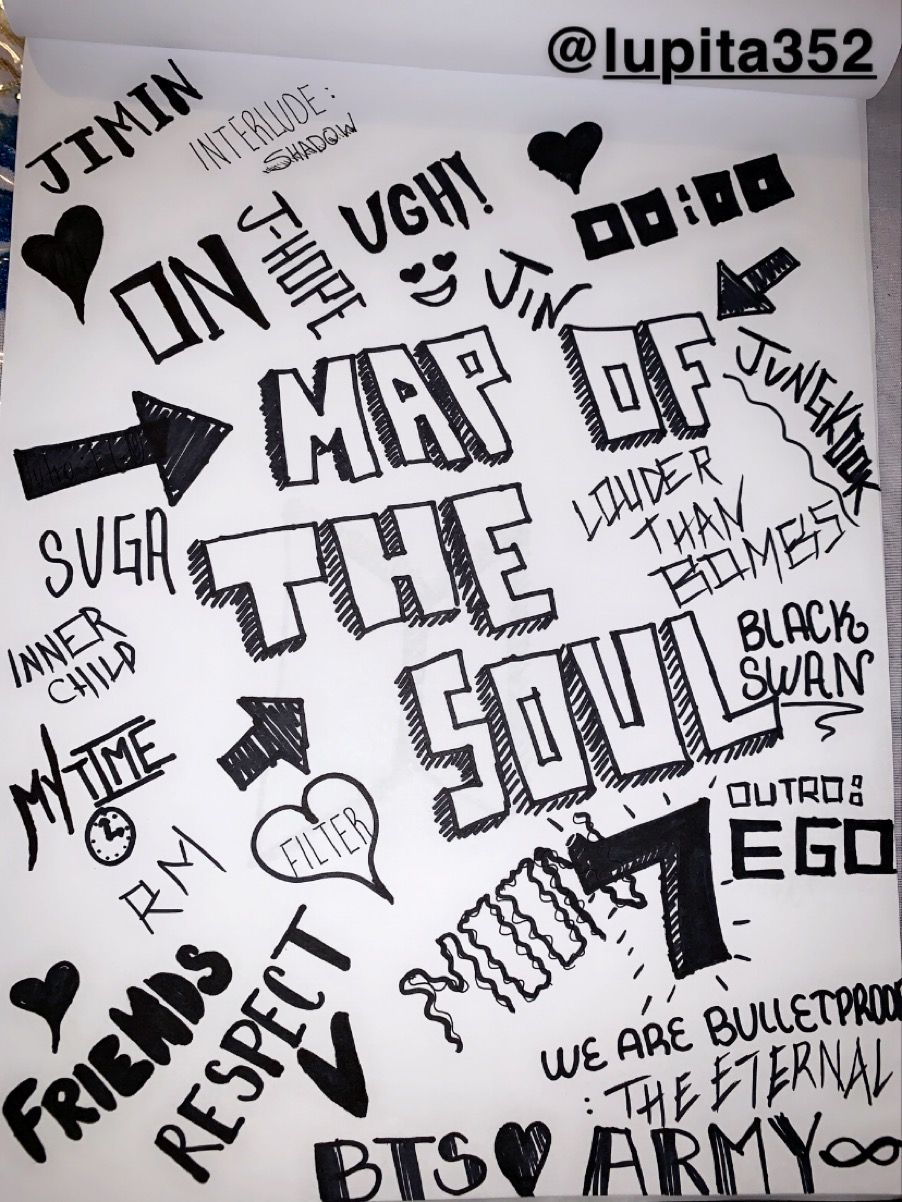 @lupita352
JIMIN
INTERLUDE:
SHADOW
UGH!
00:00
ON
J-HOPE
JIN
MAP OF
THE
SOUL
7
JUNGKOOK
LOUDER
THAN
BOMBS
SUGA
INNER
CHILD
BLACK
SWAN
MY TIME
OUTRO:
EGO
FILTER
RM
V
FRIENDS
RESPECT
WE ARE BULLETPROOF
: THE ETERNAL
BTS ♥ ARMY ∞